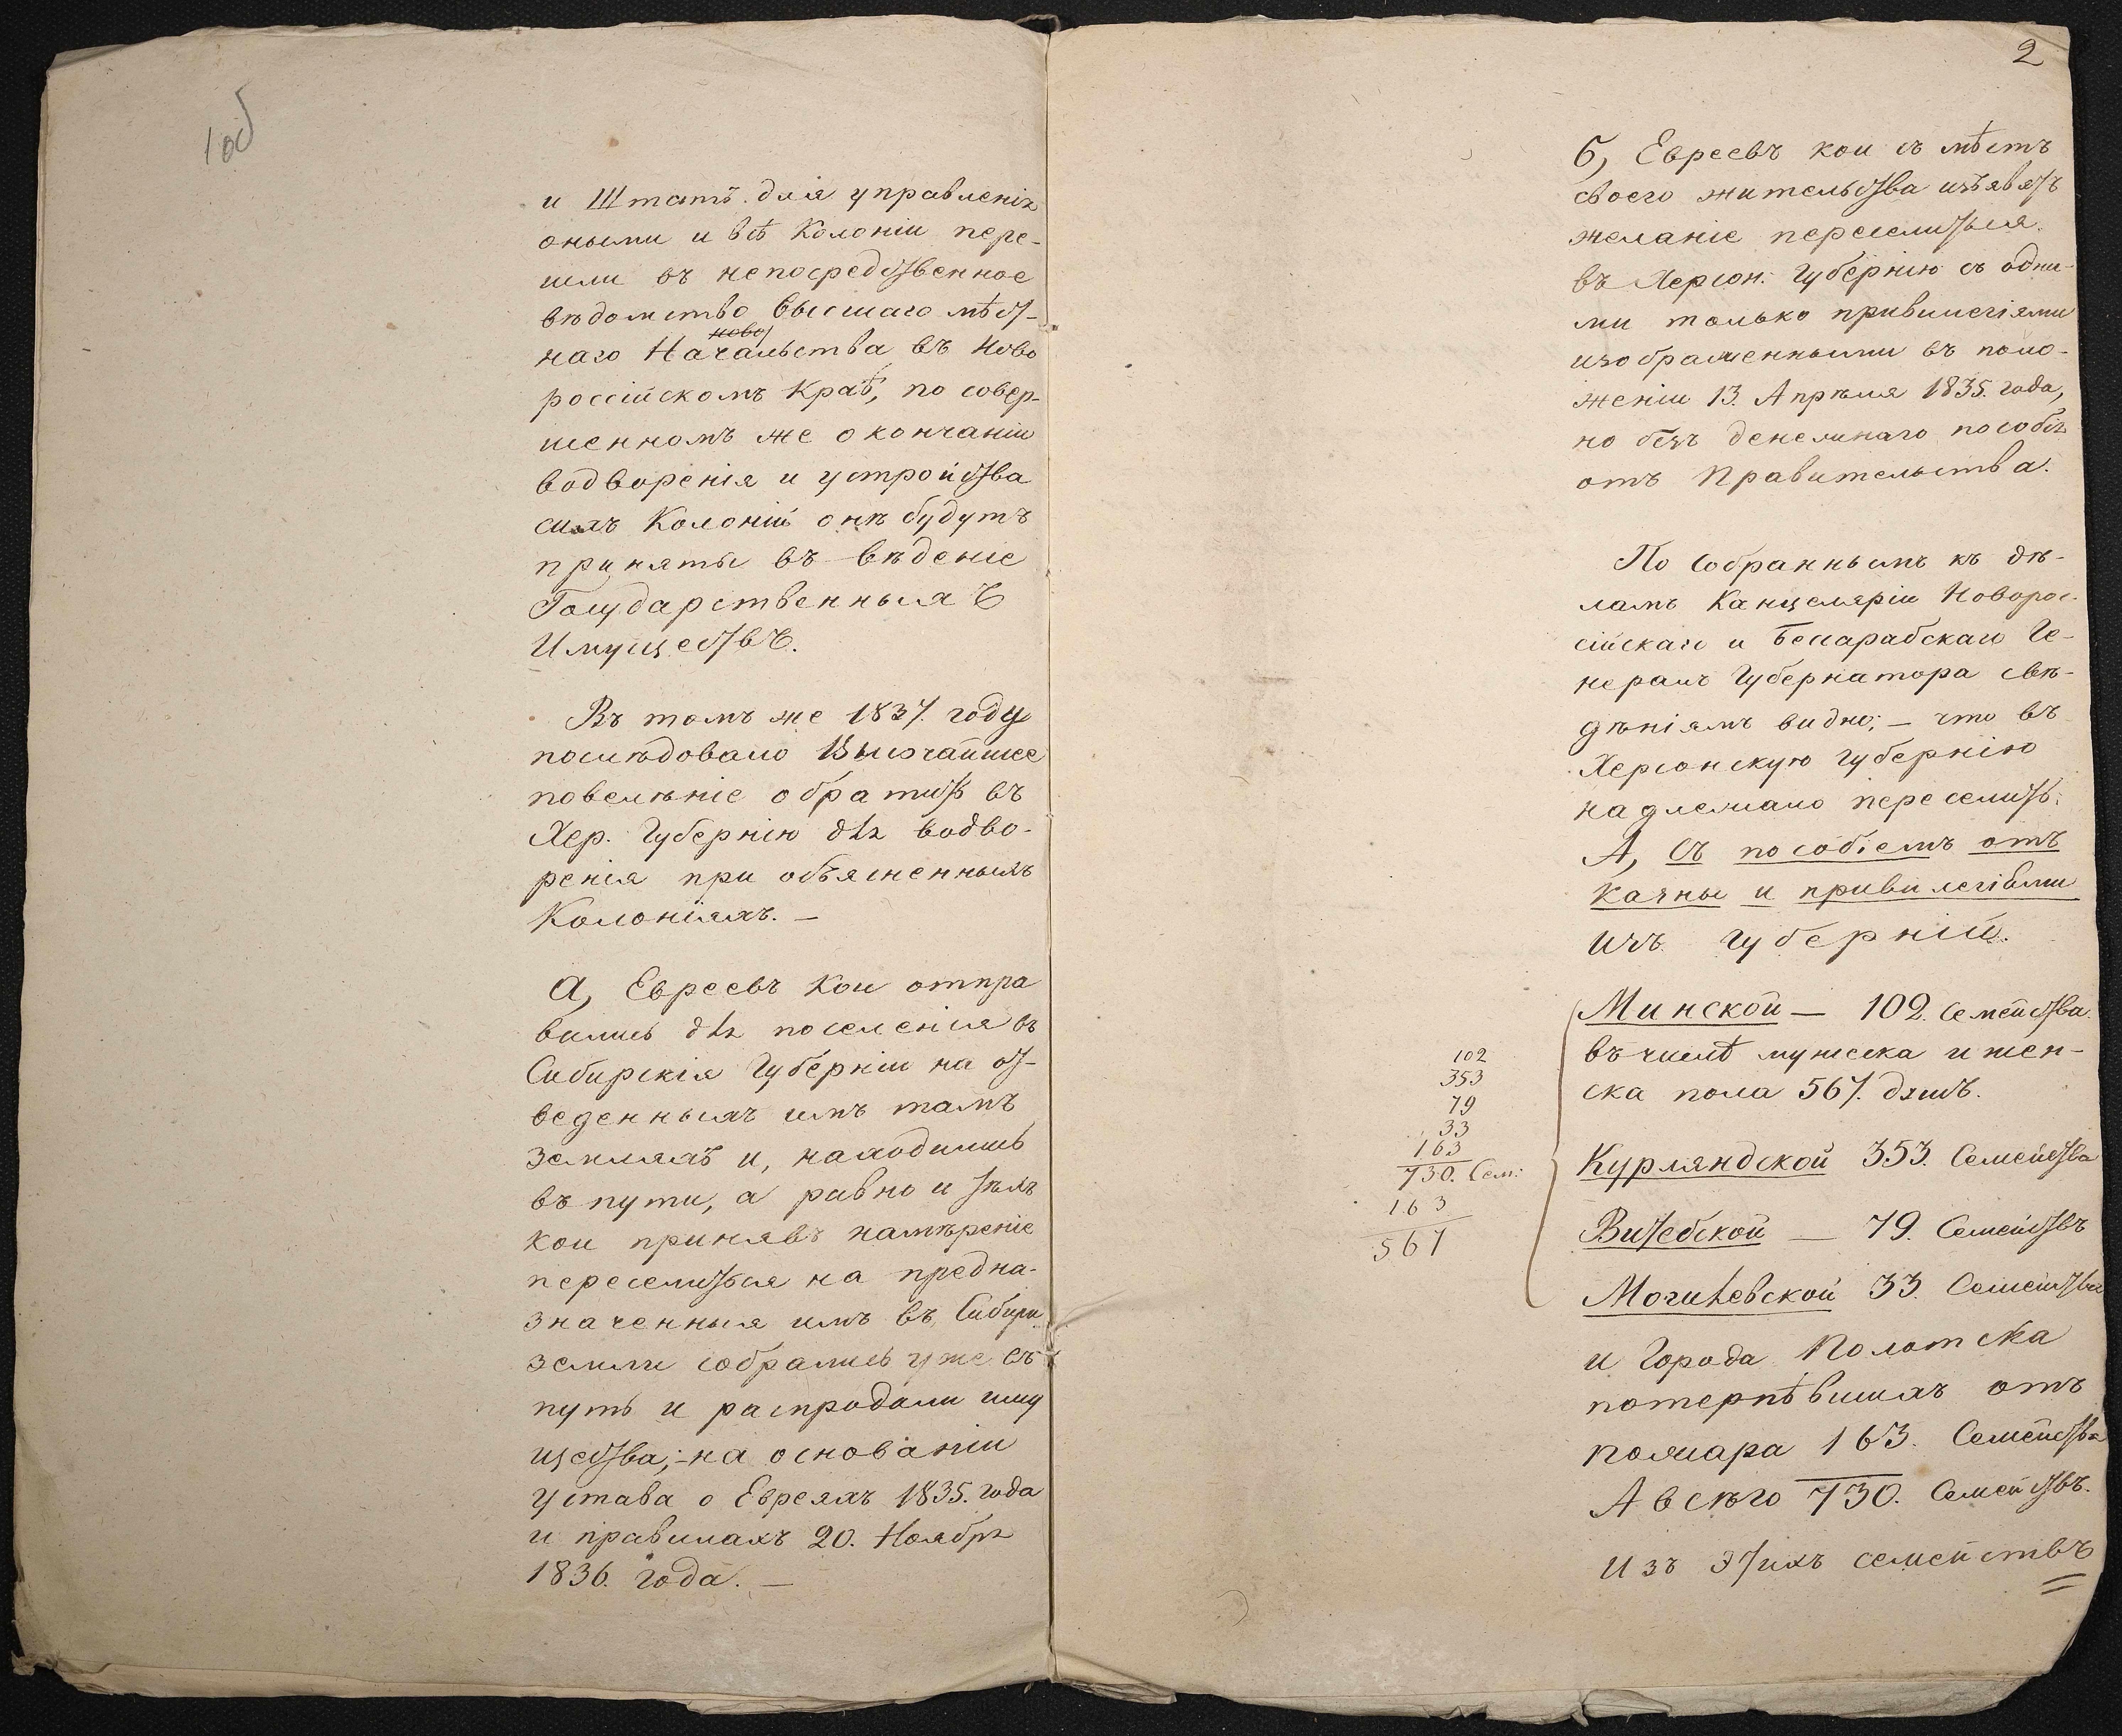 1 об
и Штатъ для управленія
оными и всѣ Колоніи пере-
шли въ непосредственное
вѣдомство высшаго мѣст-
наго Начальства въ Ново
россійскомъ Краѣ, по совер-
шенномъ же окончаніи
водворенія и устройства
сихъ Колоній онѣ будутъ
приняты въ вѣденіе
Государственныхъ
Имуществъ.
Въ томъ же 1837. году
послѣдовало Высочайшее
повелѣніе обратить въ
Хер. Губернію для водво-
ренія при объясненныхъ
Колоніяхъ. —
а, Евреевъ кои отпра
вились для поселенія въ
Сибирскія Губерніи на от-
веденныхъ имъ тамъ
земляхъ и, находились
въ пути, а равно и тѣхъ
кои принявъ намѣреніе
переселиться на предна-
значенныя имъ въ Сибири
земли собрались уже въ
путь и распродали иму
щества; - на основаніи
устава о Евреяхъ 1835. года
и правилахъ 20. Ноября
1836. года. —
2
б, Евреевъ кои съ мѣстъ
своего жительства изъявятъ
желаніе переселиться.
въ Херсон: Губернію съ одни-
ми только привилегіями
изображенными въ поло-
женіи 13. Апрѣля 1835. года,
но безъ денежнаго пособія
отъ Правительства.
По собраннымъ къ дѣ-
ламъ Канцеляріи Новорос-
сійскаго и Бессарабскаго Ге-
нералъ Губернатора свѣ-
дѣніямъ видно; - что въ
Херсонскую Губернію
надлежало переселить:
А, Съ пособіемъ отъ
казны и привилегіями
изъ Губерній.
Минской — 102. Семейства.
въ числѣ мужеска и жен-
ска пола 567. душъ.
Курляндской 353. Семейства
Витебской — 79. Семействъ
Могилевской 33. Семейства
и Города Полотска
потерпѣвшихъ отъ
пожара 163. Семейства
А всѣго 730. Семействъ.
Изъ этихъ семействъ
102
353
79
33
163
730. Сем:
163
567